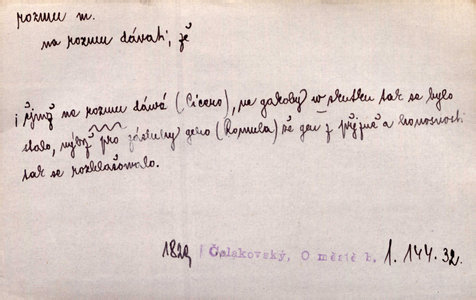 rozmu m.
na rozmu dávati, žě
na rozmu dává (Cicero), ne gakoby w skutku tak se bylo
stalo, nýbrž pro zásluhy geho (Romula) že gen z přjzně a honosnosti
tak se rozhlašowalo.
1829 Čelakovský, O městě b. 1. 144. 32.